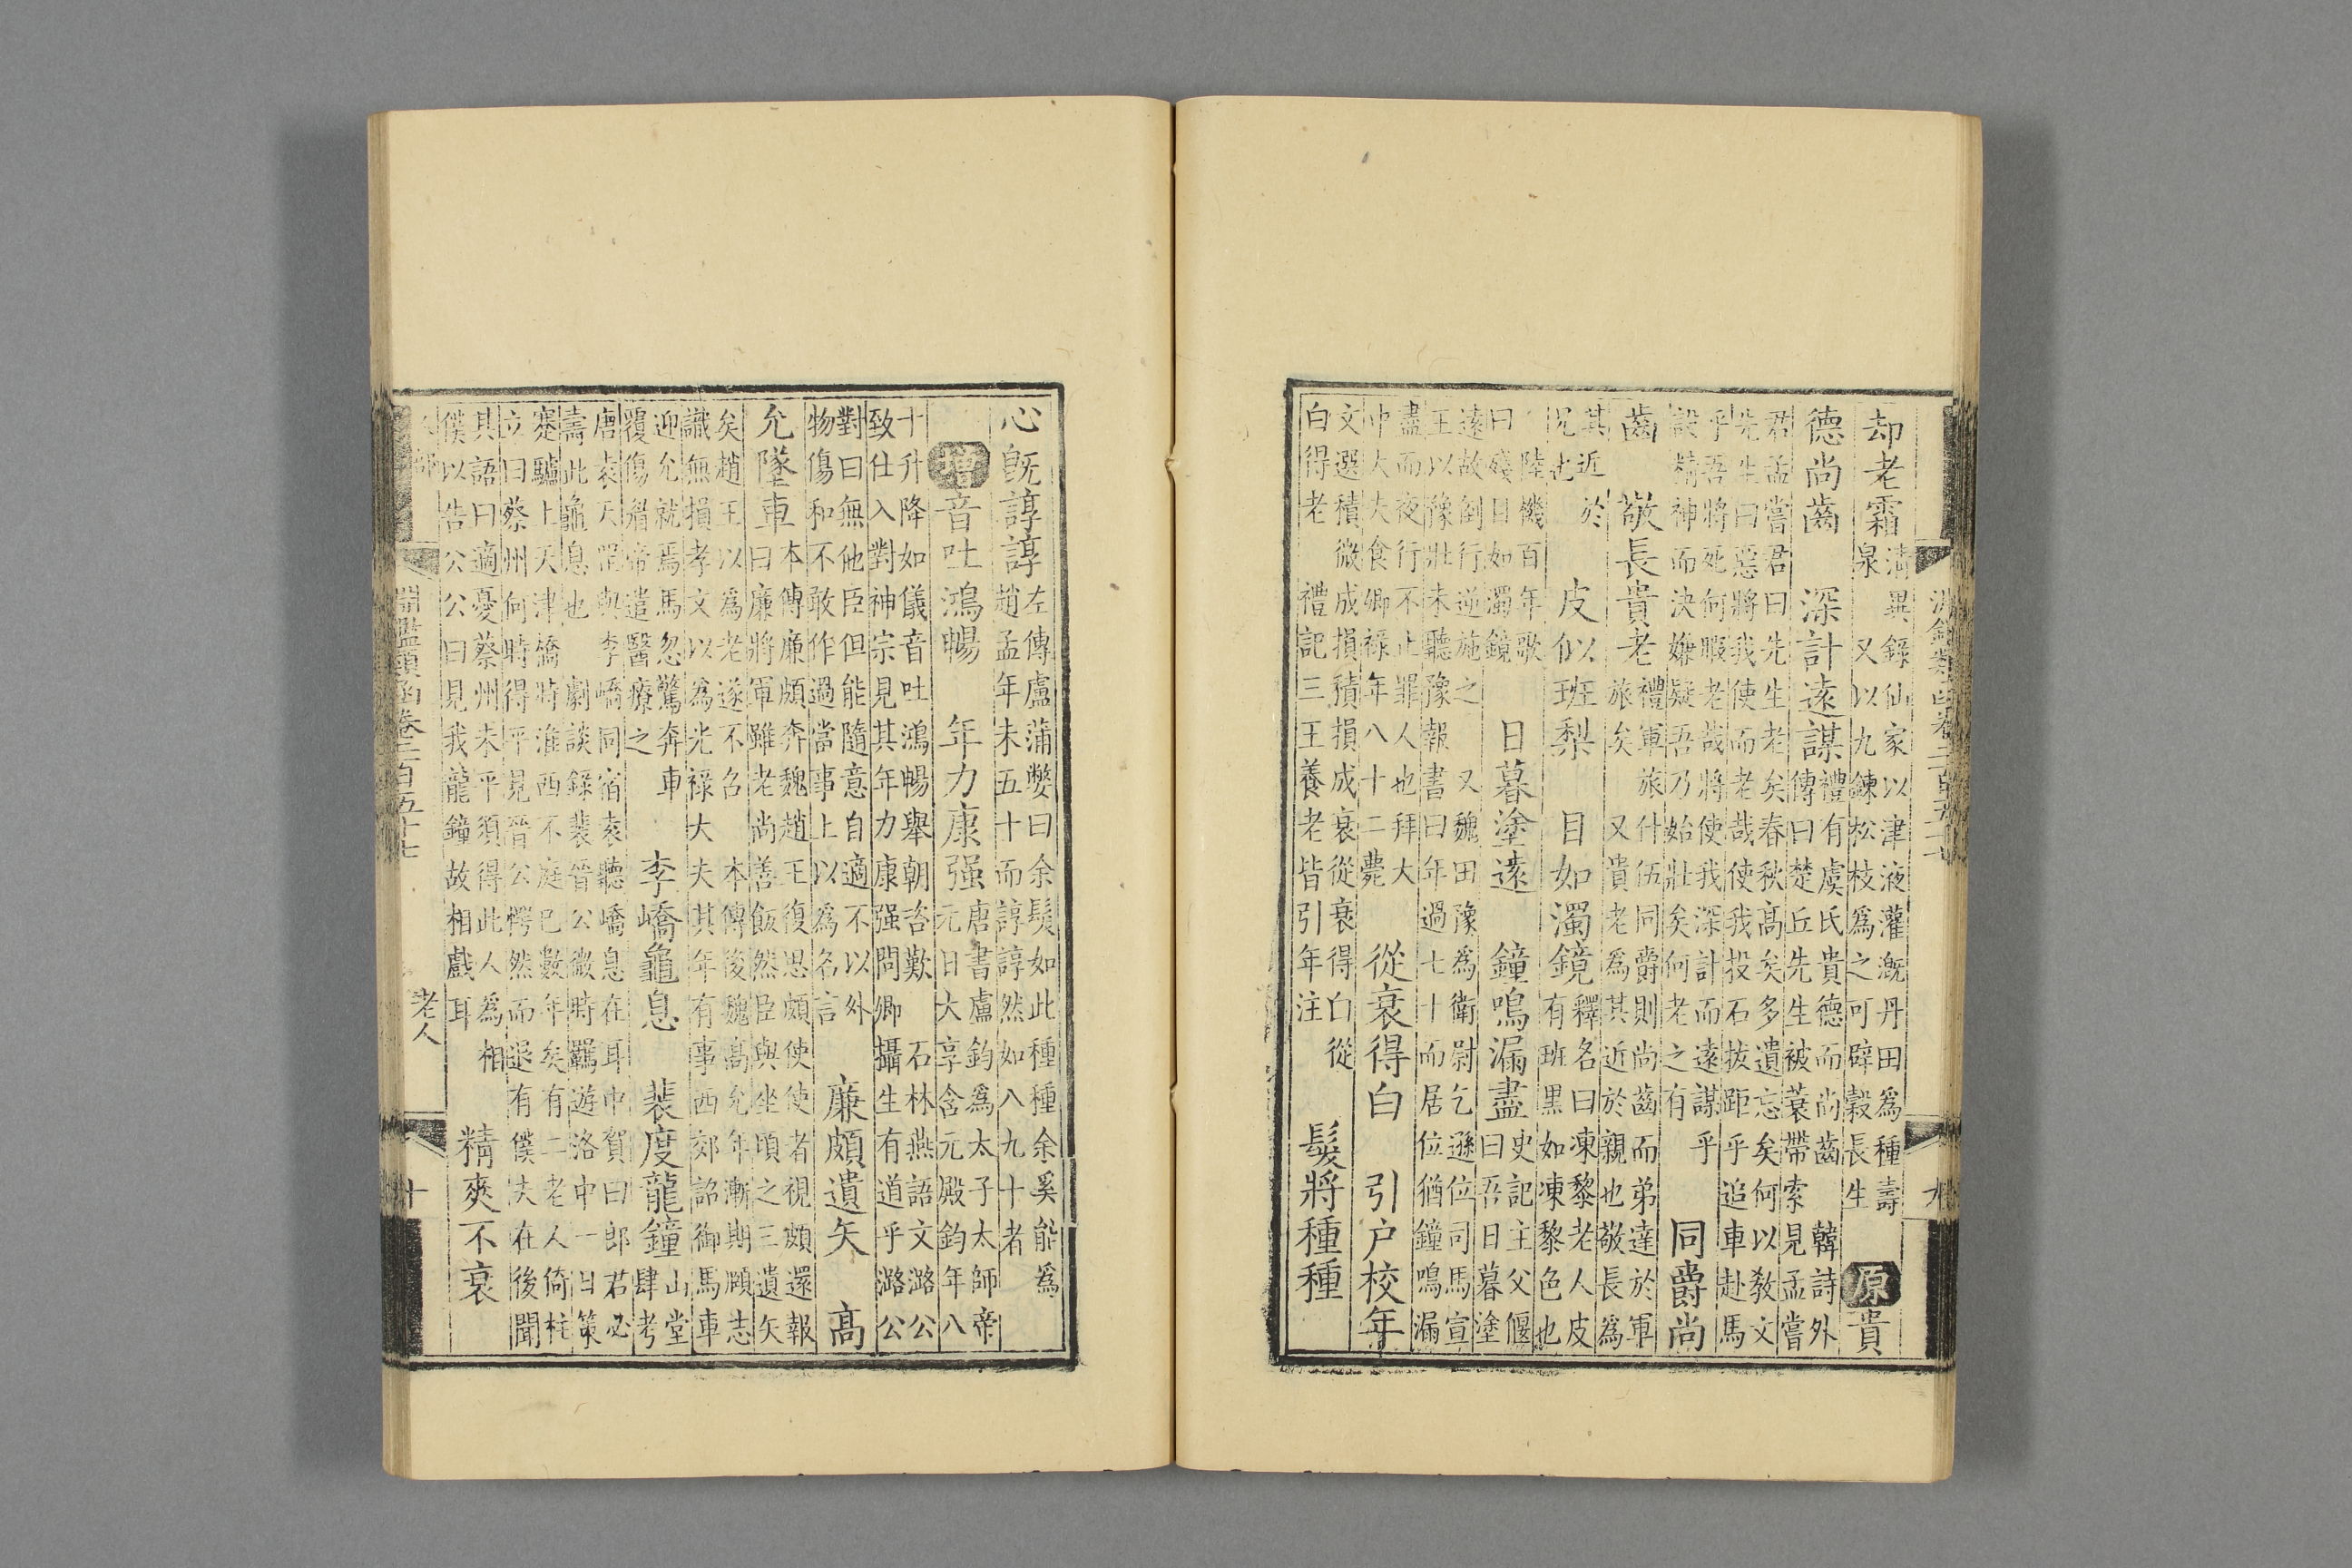 淵鑑類函卷二百五十七 九
却老霜 清異錄仙家以津液灌漑丹田為種壽
泉 又以九鍊松枝為之可辟穀長生 原 貴
德尚齒 深計遠謀 禮有虞氏貴德而尚齒 韓詩外
傳曰楚丘先生被蓑帶索見孟嘗
君孟嘗君曰先生老矣春秋高矣多遺忘矣何以敎文
先生曰惡將我使而老哉使我投石拔距乎追車赴馬
乎吾將死何暇老哉將使我深計而遠謀乎
設精神而決嫌疑吾乃始壯矣何老之有 同爵尚
齒 敬長貴老 禮軍旅什伍同爵則尚齒而弟達於軍
旅矣 又貴老為其近於親也敬長為
其近於
兄也 皮似班梨 目如濁鏡 釋名曰凍黎老人皮
有班黑如凍黎色也
陸機百年歌
曰 目如濁鏡 日暮塗遠 鐘鳴漏盡 史記主父偃
曰吾日暮塗
遠故倒行逆施之 又魏田豫為衛尉乞遜位司馬宣
王以豫壯未聽豫報書曰年過七十而居位猶鐘鳴漏
盡而夜行不止罪人也拜大
中大夫食卿祿年八十二薨 從衰得白 引户校年
文選積微成損積損成衰從衰得白從
白得老 禮記三王養老皆引年注 髮將種種
心旣諄諄 左傳盧蒲嫳曰余髮如此種種余奚能為
趙孟年未五十而諄諄然如八九十者
增 音吐鴻暢 年力康强 唐書盧鈞為太子太師帝
元日大享含元殿鈞年八
十升降如儀音吐鴻暢舉朝咨歎 石林燕語文潞公
致仕入對神宗見其年力康强問卿攝生有道乎潞公
對曰無他臣但能隨意自適不以外
物傷和不敢作過當事上以為名言 廉頗遺矢 高
允墜車 本傳廉頗奔魏趙王復思頗使使者視頗還報
曰廉將軍雖老尚善飯然臣與坐頃之三遺矢
矣趙王以為老遂不召 本傳後魏高允年漸期頤志
識無損孝文以為光祿大夫其年有事西郊詔御馬車
迎允就馬忽驚奔車
覆傷眉帝遣醫療之 李嶠龜息 裴度龍鐘 山堂
肆考
唐袁天罡執李嶠同宿袁聽嶠息在耳中賀曰郎君必
壽此龜息也 劇談錄裴晉公微時羈遊洛中一日策
蹇驢上天津橋時淮西不庭已數年矣有二老人倚柱
立曰蔡州何時得平見晉公愕然而退有僕夫在後聞
其語曰適憂蔡州未平須得此人為相
僕以告公公曰見我龍鐘故相戲耳 精爽不衰
人部 淵鑑類函卷二百五十七 老人 十